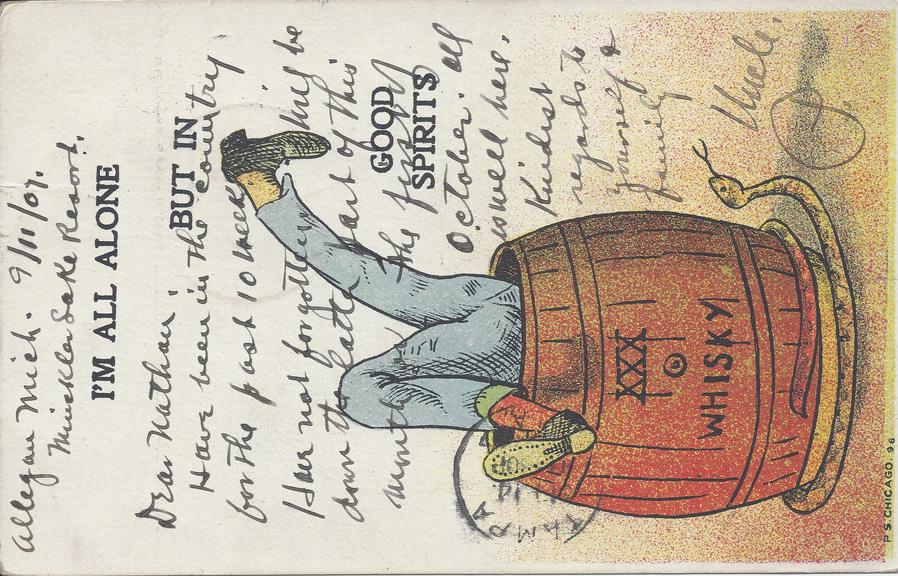 Allegan Mich. 9/11/07.
Miner Lake Resort.
I'M ALL ALONE
Dear Nathan;
BUT IN
Have been in the country
for the past 10 weeks
Have not forgotten
will be
down the latter part of this
GOOD
SPIRITS
month or the first of
October. all
well here.
Kindest
regards to
yourself &
family
Uncle
XXX
WHISKY
P S. CHICAGO. 96